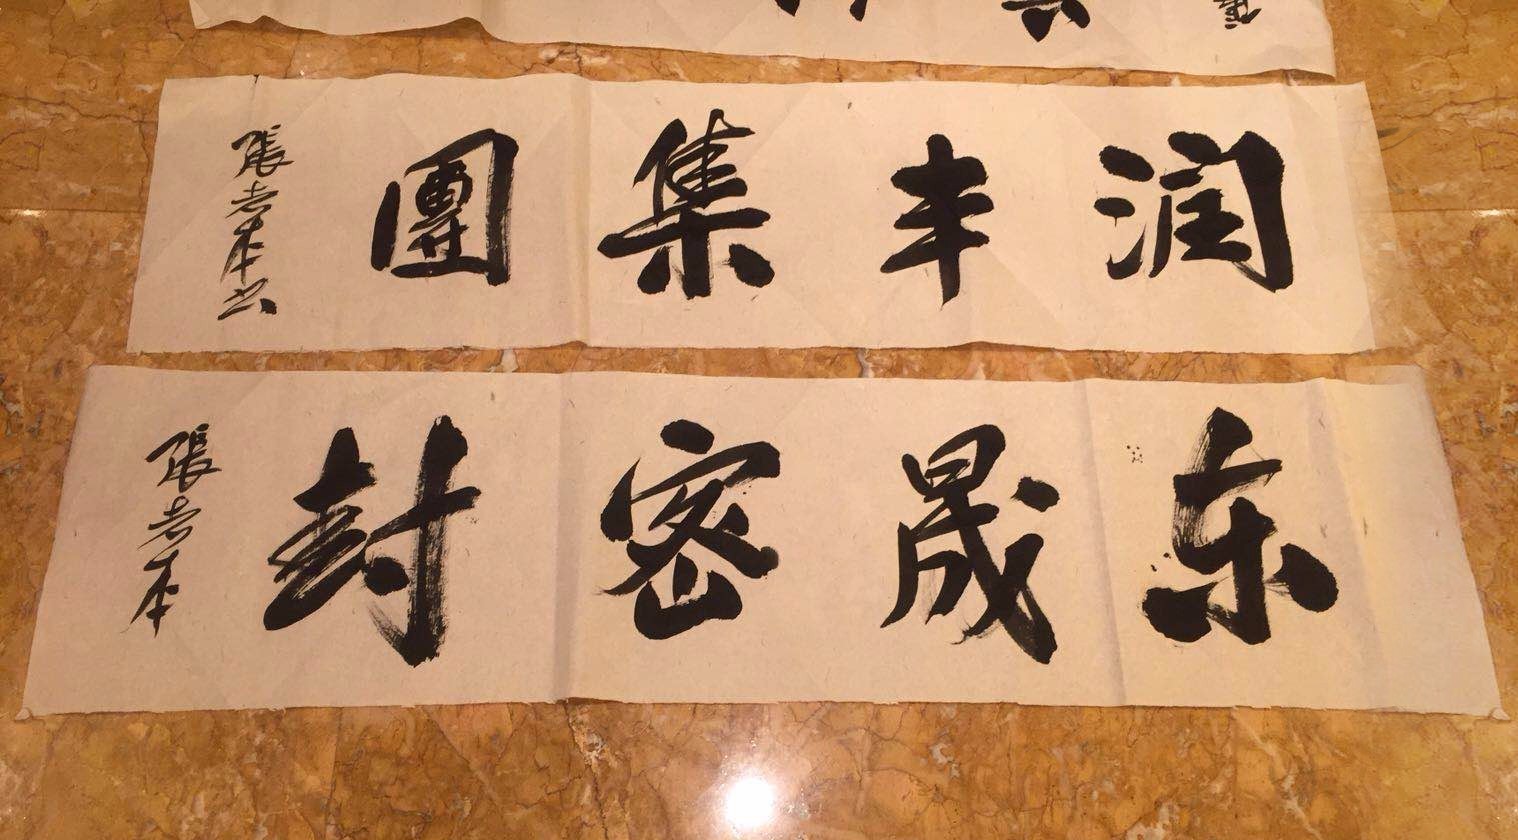 润丰集團
張老本书
东晟密封
張老本